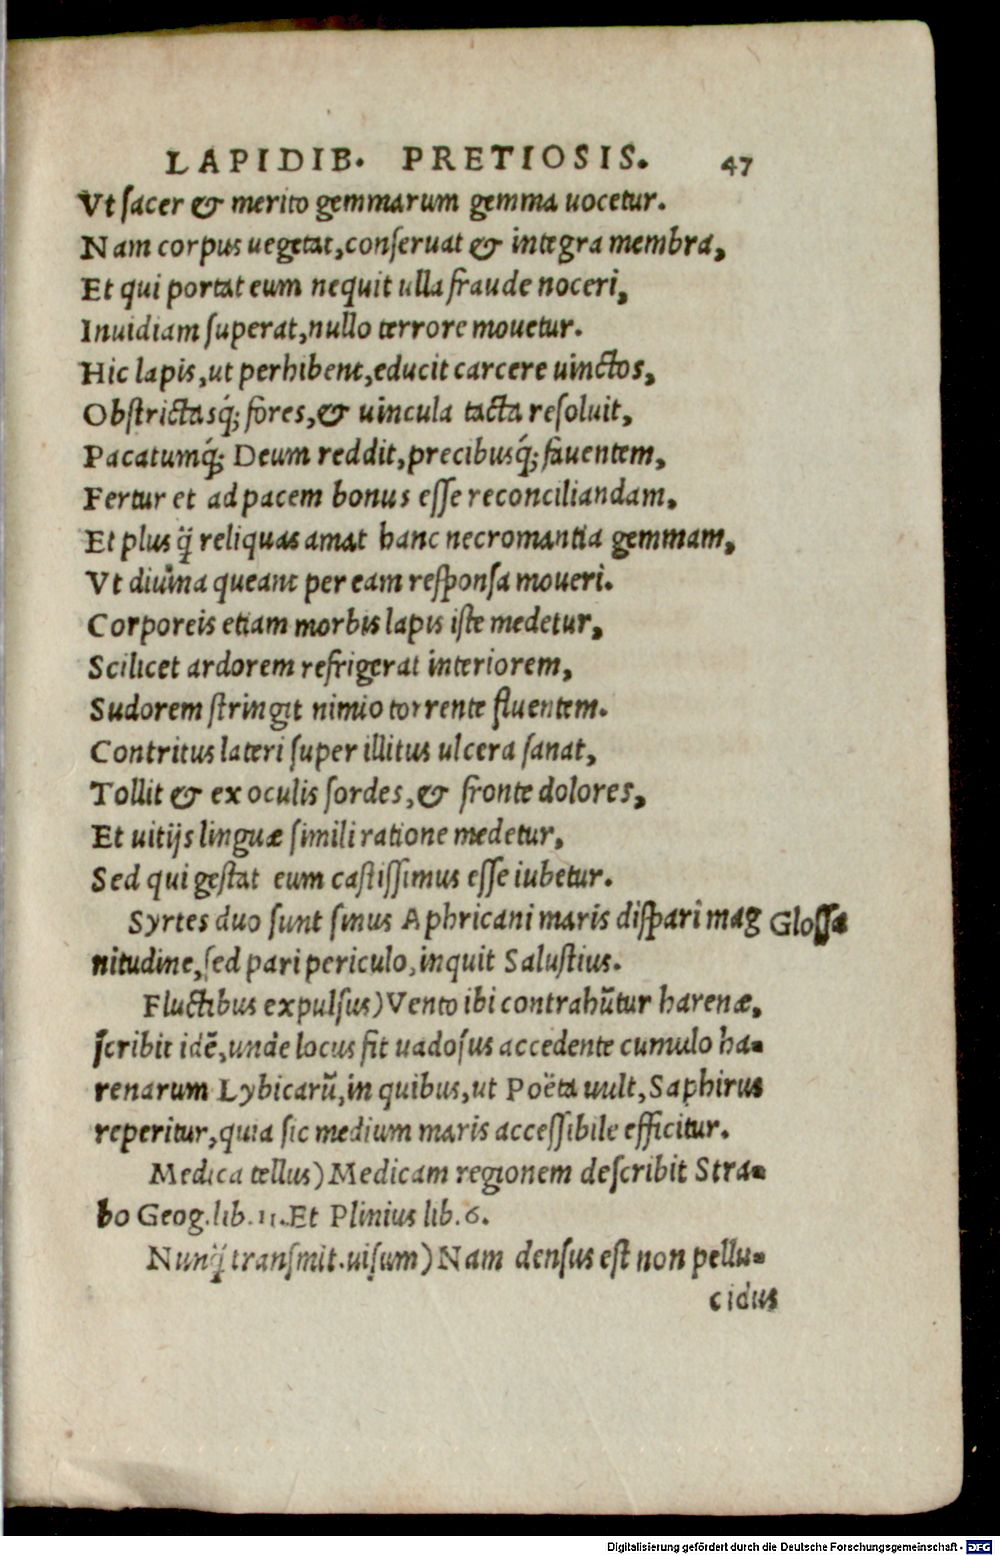 LAPIDIB. PRETIOSIS. 47
Vt sacer & merito gemmarum gemma uocetur.
Nam corpus uegetat, conseruat & integra membra,
Et qui portat eum nequit ulla fraude noceri,
Inuidiam superat, nullo terrore mouetur.
Hic lapis, ut perhibent, educit carcere uinctos,
Obstrictasq́; fores, & uincula tacta resoluit,
Pacatumq́; Deum reddit, precibusq́; fauentem,
Fertur et ad pacem bonus esse reconciliandam.
Et plus q̈ reliquas amat hanc necromantia gemmam,
Vt diuina queant per eam responsa moueri.
Corporeis etiam morbis lapis iste medetur,
Scilicet ardorem refrigerat interiorem,
Sudorem stringit nimio torrente fluentem.
Contritus lateri super illitus ulcera sanat,
Tollit & ex oculis sordes, & fronte dolores,
Et uitijs linguæ simili ratione medetur,
Sed qui gestat eum castissimus esse iubetur.
Syrtes duo sunt sinus Aphricani maris dispari mag Glossa
nitudine, sed pari periculo, inquit Salustius.
Fluctibus expulsus) Vento ibi contrahũtur harenæ,
scribit idẽ, unde locus fit uadosus accedente cumulo ha-
renarum Lybicarũ, in quibus, ut Poëta uult, Saphirus
reperitur, quia sic medium maris accessibile efficitur.
Medica tellus) Medicam regionem describit Stra-
bo Geog. lib. 11. Et Plinius lib. 6.
Nunq̈ transmit. uisum) Nam densus est non pellu-
cidus
Digitalisierung gefördert durch die Deutsche Forschungsgemeinschaft - DFG